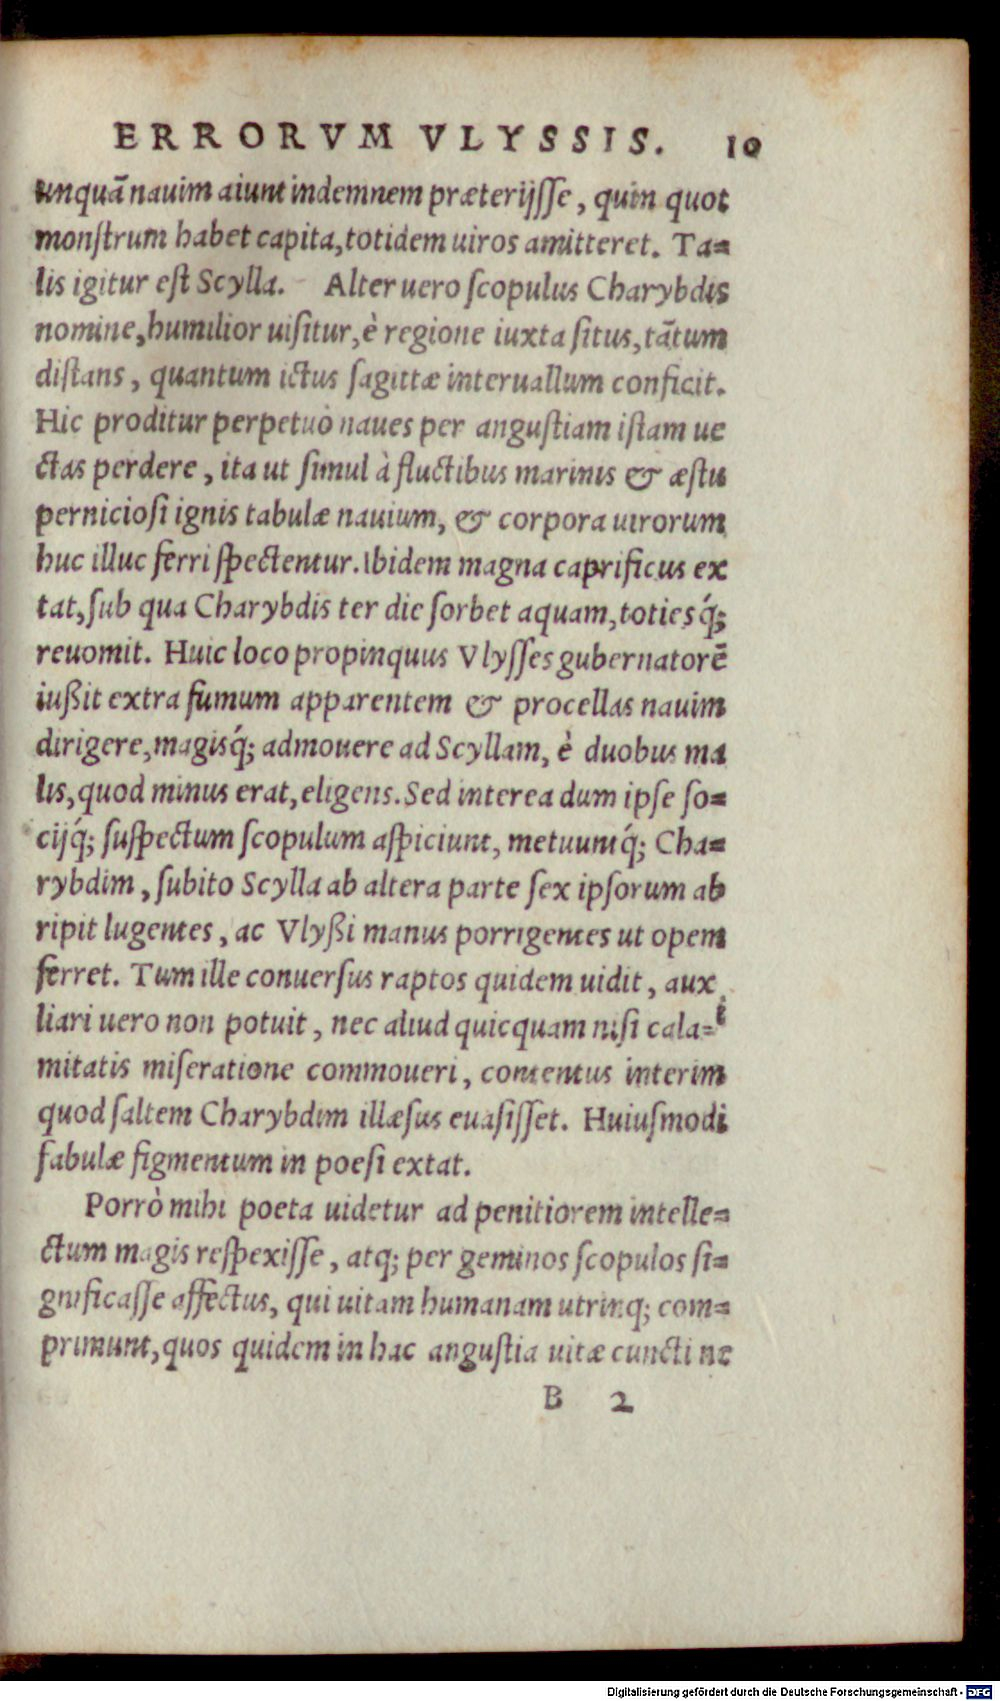 ERRORVM VLYSSIS. 10
unquã nauim aiunt indemnem præterijſſe, quin quot
monſtrum habet capita, totidem uiros amitteret. Ta=
lis igitur eſt Scylla. Alter uero ſcopulus Charybdis
nomine, humilior uiſitur, è regione iuxta ſitus, tãtum
diſtans, quantum ictus ſagittæ interuallum conficit.
Hic proditur perpetuò naues per anguſtiam iſtam ue
ctas perdere, ita ut ſimul à fluctibus marinis & æſtu
pernicioſi ignis tabulæ nauium, & corpora uirorum
huc illuc ferri ſpectentur. Ibidem magna caprificus ex
tat, ſub qua Charybdis ter die ſorbet aquam, toties q́;
reuomit. Huic loco propinquus Vlyſſes gubernatorẽ
iußit extra fumum apparentem & procellas nauim
dirigere, magisq́; admouere ad Scyllam, è duobus ma
lis, quod minus erat, eligens. Sed interea dum ipſe ſo=
cijq́; ſuſpectum ſcopulum aſpiciunt, metuuntq́; Cha=
rybdim, ſubito Scylla ab altera parte ſex ipſorum ab
ripit lugentes, ac Vlyßi manus porrigentes ut opem
ferret. Tum ille conuerſus raptos quidem uidit, aux
liari uero non potuit, nec aliud quicquam niſi cala= i
mitatis miſeratione commoueri, contentus interim
quod ſaltem Charybdim illæſus euaſiſſet. Huiuſmodi
fabulæ figmentum in poeſi extat.
Porrò mihi poeta uidetur ad penitiorem intelle=
ctum magis reſpexiſſe, atq; per geminos ſcopulos ſi=
gnificaſſe affectus, qui uitam humanam utrinq; com=
primunt, quos quidem in hac anguſtia uitæ cuncti ne
B 2
Digitalisierung gefördert durch die Deutsche Forschungsgemeinschaft - DFG